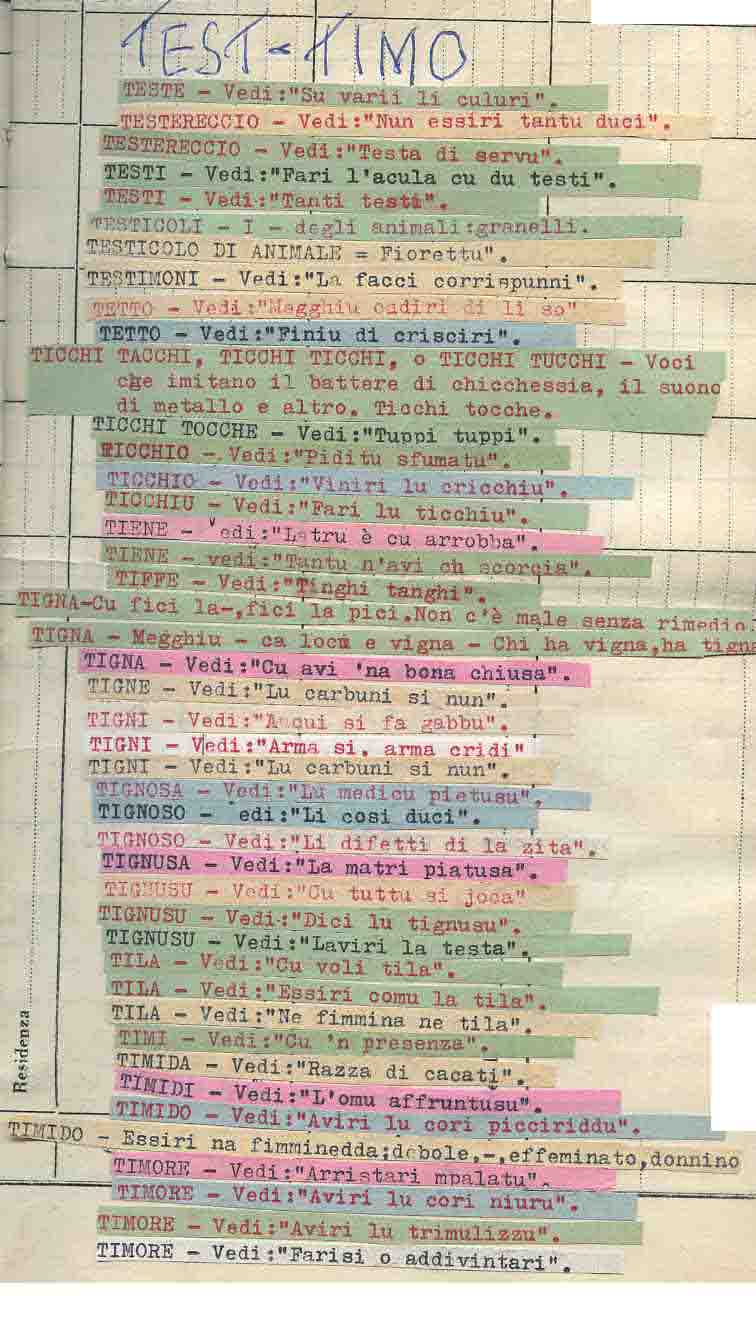 TEST-TIMO
TESTE - Vedi:"Su varii li culuri".
TESTERECCIO - Vedi:"Nun essiri tantu duci".
TESTERECCIO - Vedi:"Testa di servu".
TESTI - Vedi:"Fari l'acula cu du testi".
TESTI - Vedi:"Tanti testi".
TESTICOLI - I - degli animali:granelli.
TESTICOLO DI ANIMALE = Fiorettu".
TESTIMONI - Vedi:"La facci corrispunni".
TETTO - Vedi:"Megghiu cadiri di li so"
TETTO - Vedi:"Finiu di crisciri".
TICCHI TACCHI, TICCHI TICCHI, o TICCHI TUCCHI - Voci
che imitano il battere di chicchessia, il suono
di metallo e altro. Ticchi tocche.
TICCHI TOCCHE - Vedi:"Tuppi tuppi".
RICCHIO -.Vedi:"Piditu sfumatu".
TICCHIO - Vedi:"Viniri lu cricchiu".
TICCHIU - Vedi:"Fari lu ticchiu".
TIENE - Vedi:"Latru è cu arrobba".
TIENE - vedi:"Tantu n'avi ch scorcia".
TIFFE - Vedi:"Tinghi tanghi".
TIGNA-Cu fici la-,fici la pici.Non c'è male senza rimedio.
TIGNA - Megghiu - ca locu e vigna - Chi ha vigna,ha tigna
TIGNA - Vedi:"Cu avi 'na bona chiusa".
TIGNE - Vedi:"Lu carbuni si nun".
TIGNI - Vedi:"A cui si fa gabbu".
TIGNI - Vedi:"Arma si, arma cridi"
TIGNI - Vedi:"Lu carbuni si nun".
TIGNOSA - Vedi:"Lu medicu pietusu".
TIGNOSO - edi:"Li cosi duci".
TIGNOSO - Vedi:"Li difetti di la zita".
TIGNUSA - Vedi:"La matri piatusa".
TIGNUSU - Vedi:"Cu tuttu si joca"
TIGNUSU - Vedi:"Dici lu tignusu".
TIGNUSU - Vedi:"Laviri la testa".
TILA - Vedi:"Cu voli tila".
TILA - Vedi:"Essiri comu la tila".
TILA - Vedi:"Ne fimmina ne tila".
TIMI - Vedi:"Cu 'n presenza".
TIMIDA - Vedi:"Razza di cacati".
TIMIDI - Vedi:"L'omu affruntusu".
TIMIDO - Vedi:"Aviri lu cori picciriddu".
TIMIDO - Essiri na fimminedda;debole,-,effeminato,donnino
TIMORE - Vedi:"Arristari mpalatu".
TIMORE - Vedi:"Aviri lu cori niuru".
TIMORE - Vedi:"Aviri lu trimulizzu".
TIMORE - Vedi:"Farisi o addivintari".
Residenza